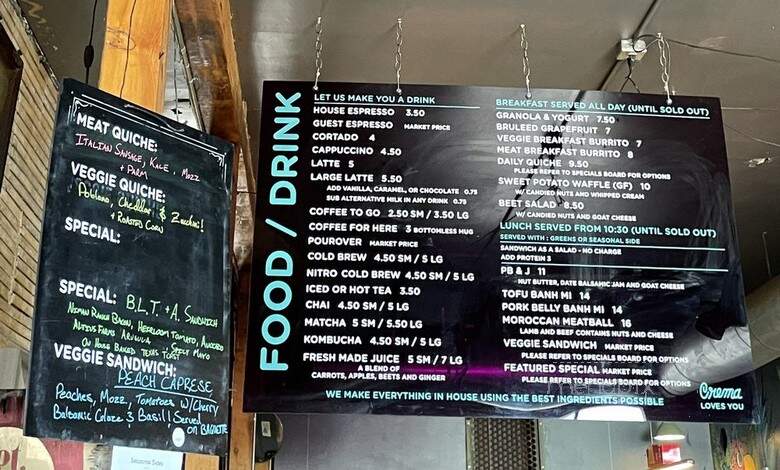 MEAT QUICHE:
ITALIAN SAUSAGE, KALE, MOZZ
+ PARM
VEGGIE QUICHE:
Poblano, Cheddar & Zucchini!
+ ROASTED CORN
SPECIAL:
SPECIAL: B.L.T. + A. SANDWICH
NEIMAN RANCH BACON, HEIRLOOM TOMATO, AVOCADO
ALTIUS FARMS ARUGULA SPICY MAYO
ON HOUSE BAKED TEXAS TOAST
VEGGIE SANDWICH:
PEACH CAPRESE
Peaches, Mozz, Tomatoes w/ Cherry
Balsamic Glaze & Basil! Served
on BAGUETTE
FOOD / DRINK
LET US MAKE YOU A DRINK
HOUSE ESPRESSO 3.50
GUEST ESPRESSO MARKET PRICE
CORTADO 4
CAPPUCCINO 4.50
LATTE 5
LARGE LATTE 5.50
ADD VANILLA, CARAMEL, OR CHOCOLATE 0.75
SUB ALTERNATIVE MILK IN ANY DRINK 0.75
COFFEE TO GO 2.50 SM / 3.50 LG
COFFEE FOR HERE 3 BOTTOMLESS MUG
POUROVER MARKET PRICE
COLD BREW 4.50 SM / 5 LG
NITRO COLD BREW 4.50 SM / 5 LG
ICED OR HOT TEA 3.50
CHAI 4.50 SM / 5 LG
MATCHA 5 SM / 5.50 LG
KOMBUCHA 4.50 SM / 5 LG
FRESH MADE JUICE 5 SM / 7 LG
A BLEND OF
CARROTS, APPLES, BEETS AND GINGER
BREAKFAST SERVED ALL DAY (UNTIL SOLD OUT)
GRANOLA & YOGURT 7.50
BRULEED GRAPEFRUIT 7
VEGGIE BREAKFAST BURRITO 7
MEAT BREAKFAST BURRITO 8
DAILY QUICHE 9.50
PLEASE REFER TO SPECIALS BOARD FOR OPTIONS
SWEET POTATO WAFFLE (GF) 10
W/ CANDIED NUTS AND WHIPPED CREAM
BEET SALAD 8.50
W/ CANDIED NUTS AND GOAT CHEESE
LUNCH SERVED FROM 10:30 (UNTIL SOLD OUT)
SERVED WITH: GREENS OR SEASONAL SIDE
SANDWICH AS A SALAD - NO CHARGE
ADD PROTEIN 3
PB & J 11
NUT BUTTER, DATE BALSAMIC JAM AND GOAT CHEESE
TOFU BANH MI 14
PORK BELLY BANH MI 14
MOROCCAN MEATBALL 16
LAMB AND BEEF CONTAINS NUTS AND CHEESE
VEGGIE SANDWICH MARKET PRICE
PLEASE REFER TO SPECIALS BOARD FOR OPTIONS
FEATURED SPECIAL MARKET PRICE
PLEASE REFER TO SPECIALS BOARD FOR OPTIONS
WE MAKE EVERYTHING IN HOUSE USING THE BEST INGREDIENTS POSSIBLE
Crema
LOVES YOU